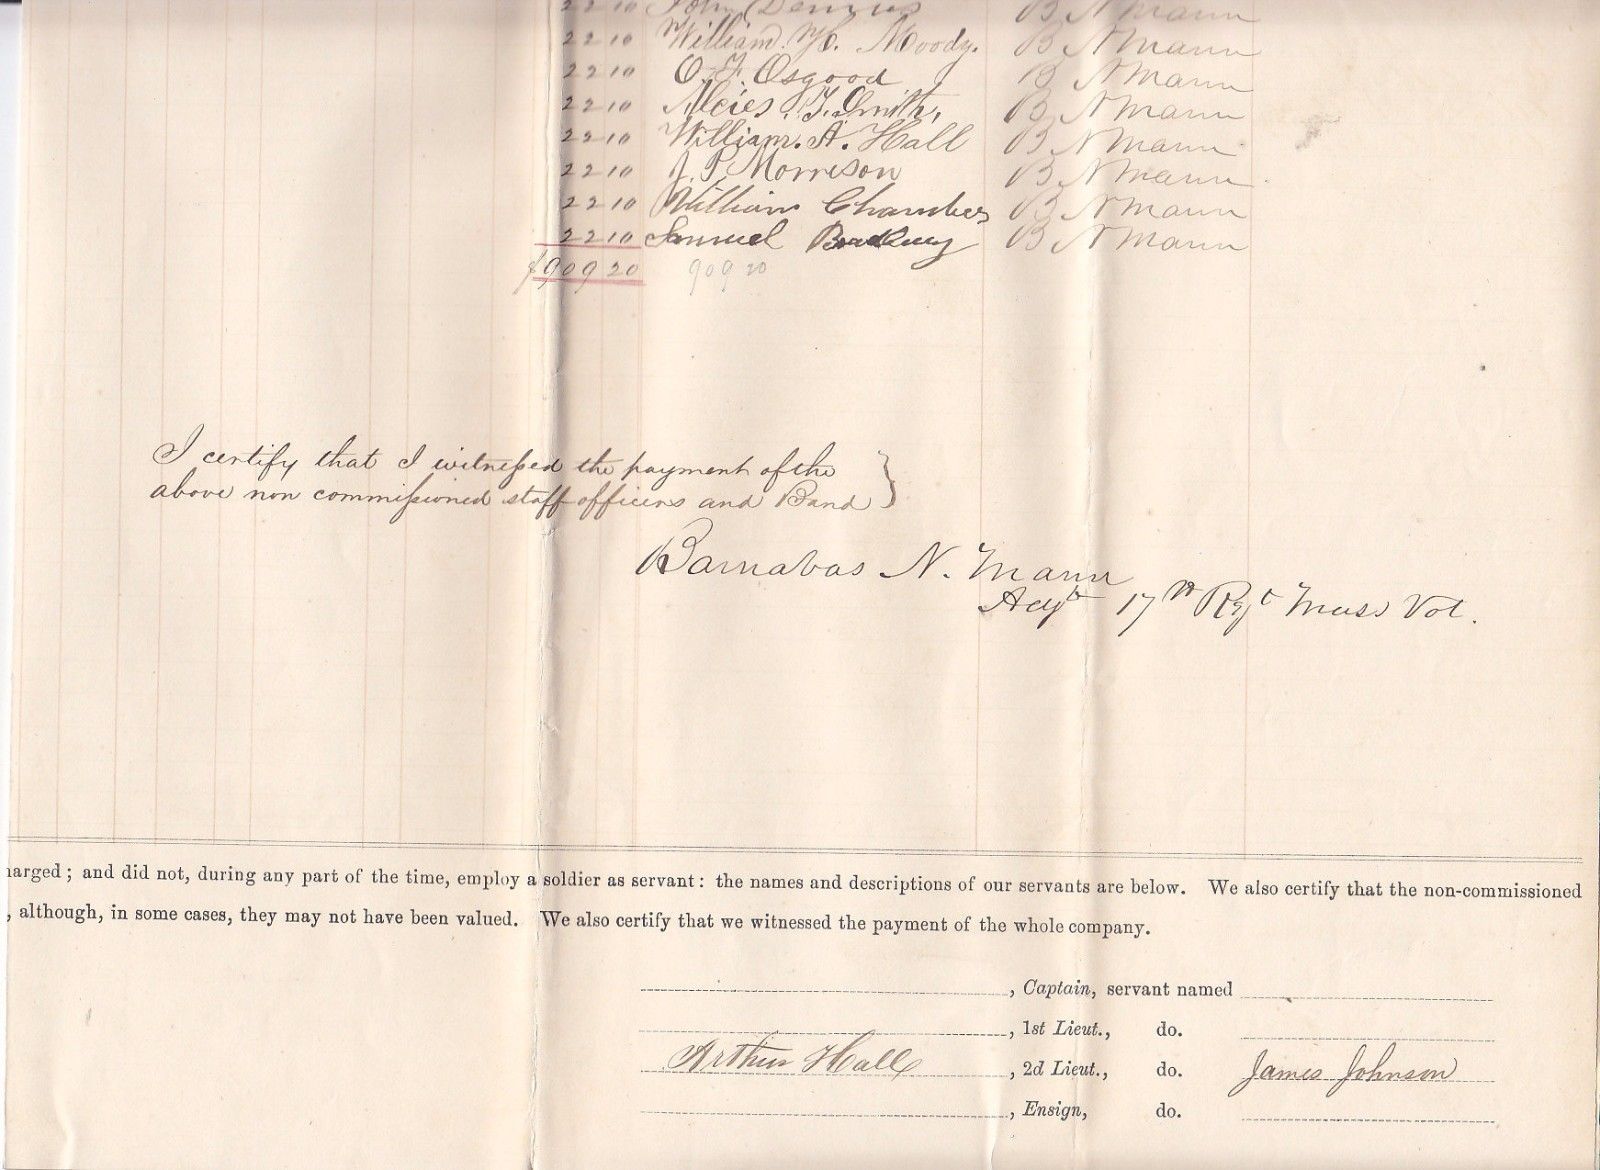 22 10 John Dennis B N Mann
22 10 William. H. Moody. B N Mann
22 10 O. F. Osgood B N Mann
22 10 T. Smith, B N Mann
22 10 William. A. Hall B N Mann
22 10 J. P. Morrison B N Mann
22 10 William Chambers B N Mann
22 10 Samuel Bradbury B N Mann
$909 20 909 20
I certify that I witnessed the payment of the
above non commissioned staff officers and Band }
Barnabas N. Mann
Adjt 17th Regt Mass Vol.
harged; and did not, during any part of the time, employ a soldier as servant: the names and descriptions of our servants are below. We also certify that the non-commissioned
, although, in some cases, they may not have been valued. We also certify that we witnessed the payment of the whole company.
, Captain, servant named
, 1st Lieut., do.
Arthur Hall , 2d Lieut., do. James Johnson
, Ensign, do.